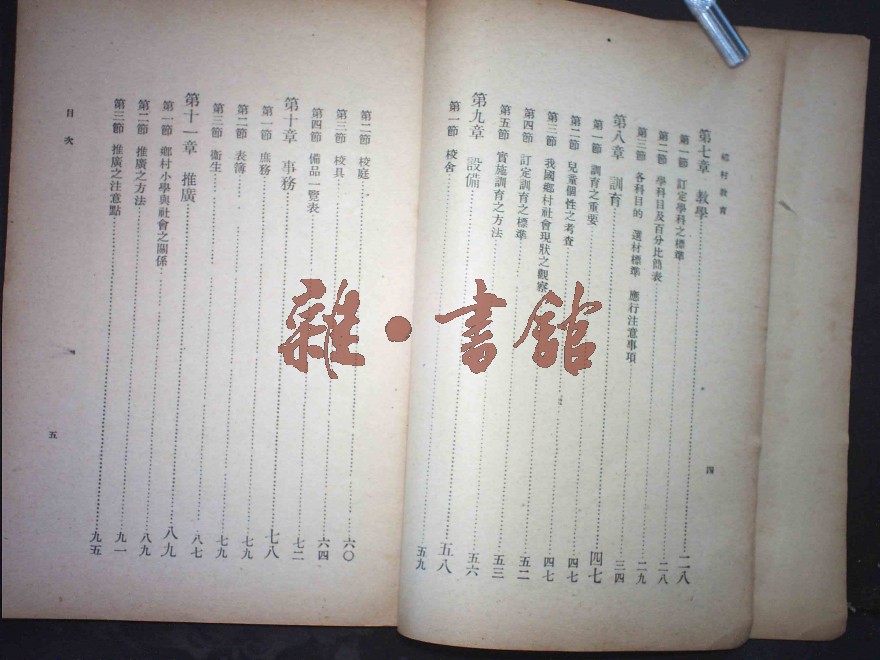 鄉村教育
第七章 教學……二八
第一節 訂定學科之標準……二八
第二節 學科目及百分比簡表……二九
第三節 各科目的 選材標準 應行注意事項……三四
第八章 訓育……四七
第一節 訓育之重要……四七
第二節 兒童個性之考查……四七
第三節 我國鄉村社會現狀之觀察……五二
第四節 訂定訓育之標準……五三
第五節 實施訓育之方法……五六
第九章 設備……五八
第一節 校舍……五九
四
第二節 校庭……六〇
第三節 校具……六四
第四節 備品一覽表……七二
第十章 事務……七八
第一節 庶務……七九
第二節 表簿……七九
第三節 衛生……八七
第十一章 推廣……八九
第一節 鄉村小學與社會之關係……八九
第二節 推廣之方法……九一
第三節 推廣之注意點……九五
目次
五
雜·書館